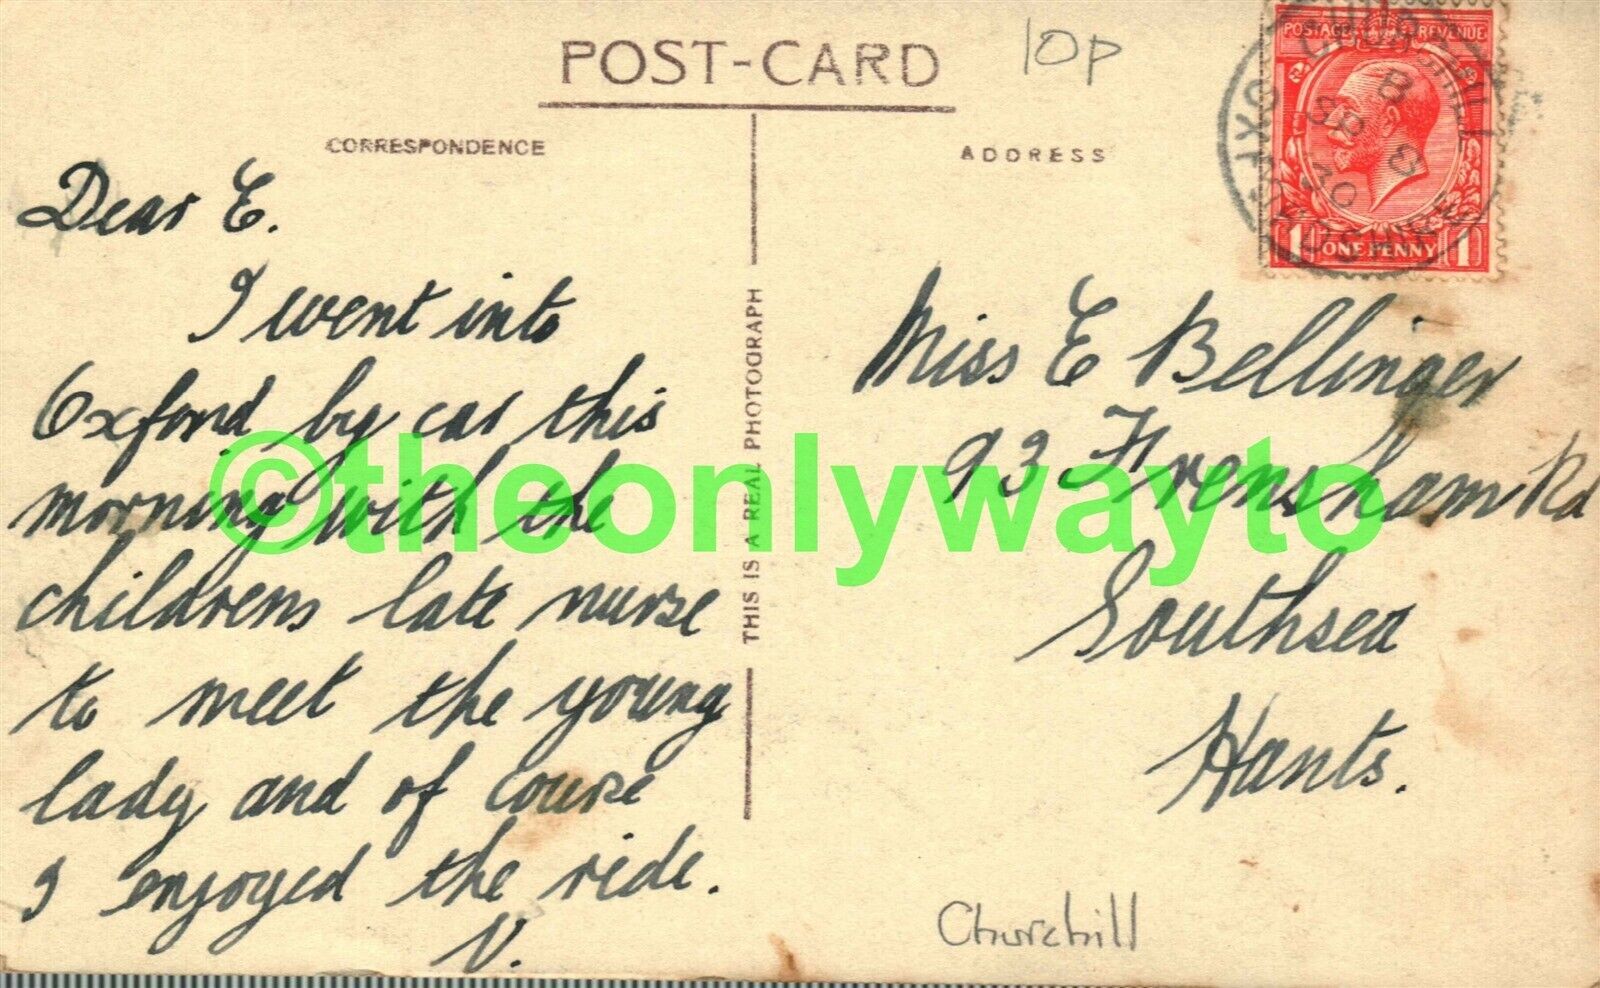 POST-CARD
10p
CORRESPONDENCE
ADDRESS
POSTAGE REVENUE
1 ONE PENNY 1
CHURCHILL
OXFORDSHIRE
8
SP 8
30
Dear E.
I went into
Oxford by car this
morning with the
childrens late nurse
to meet the young
lady and of course
I enjoyed the ride.
V.
THIS IS A REAL PHOTOGRAPH
Miss E Bellinger
93 Frensham Rd
Southsea
Hants.
Churchill
©theonlywayto